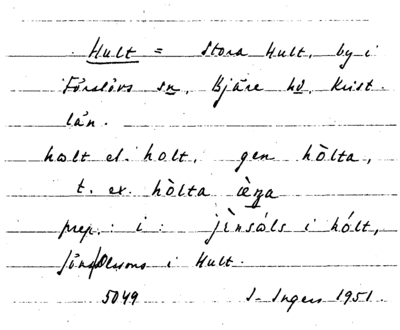 Hult = Stora Hult, by i
Förslövs sn, Bjäre hd, Krist.
län.
hølt el. holt, gen hòlta,
t. ex. hòlta æ̀ga
prep.: i: jìnsáls i hólt,
Jöns Olssons i Hult.
5049 I. Ingers 1951.